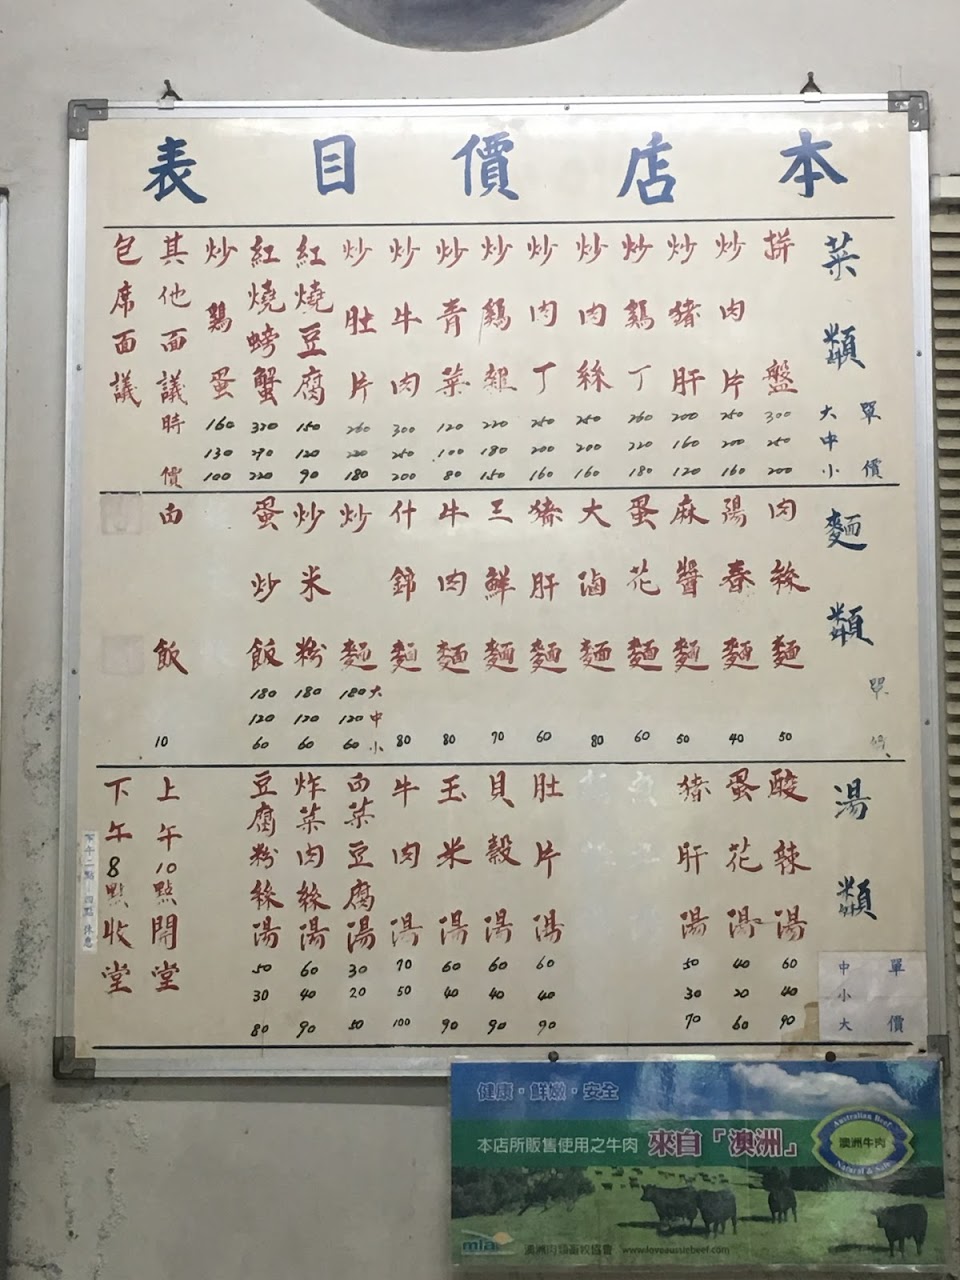 本店價目表
菜類
單價
大中小
拼盤 300 250 200
炒肉片 250 200 160
炒猪肝 200 160 120
炒鷄丁 260 220 180
炒肉絲 250 200 160
炒肉丁 250 200 160
炒鷄雜 220 180 150
炒青菜 120 100 80
炒牛肉 300 250 200
炒肚片 260 220 180
紅燒豆腐 150 120 90
紅燒螃蟹 320 270 220
炒鷄蛋 160 130 100
其他面議時價
包席面議
麵類
單價
肉絲麵 50
陽春麵 40
麻醬麵 50
蛋花麵 60
大滷麵 80
猪肝麵 60
三鮮麵 70
牛肉麵 80
什錦麵 80
炒麵 180大 120中 60小
炒米粉 180 120 60
蛋炒飯 180 120 60
白飯 10
湯類
單價
中小大
酸辣湯 60 40 90
蛋花湯 40 20 60
猪肝湯 50 30 70
肚片湯 60 40 90
貝穀湯 60 40 90
玉米湯 60 40 90
牛肉湯 70 50 100
白菜豆腐湯 30 20 50
炸菜肉絲湯 60 40 90
豆腐粉絲湯 50 30 80
上午10點開堂
下午8點收堂
下午二點-四點休息
健康・鮮嫩・安全
本店所販售使用之牛肉 來自「澳洲」
Australian Beef
澳洲牛肉
Natural & Safe
mla 澳洲肉類畜牧協會 www.loveaussiebeef.com